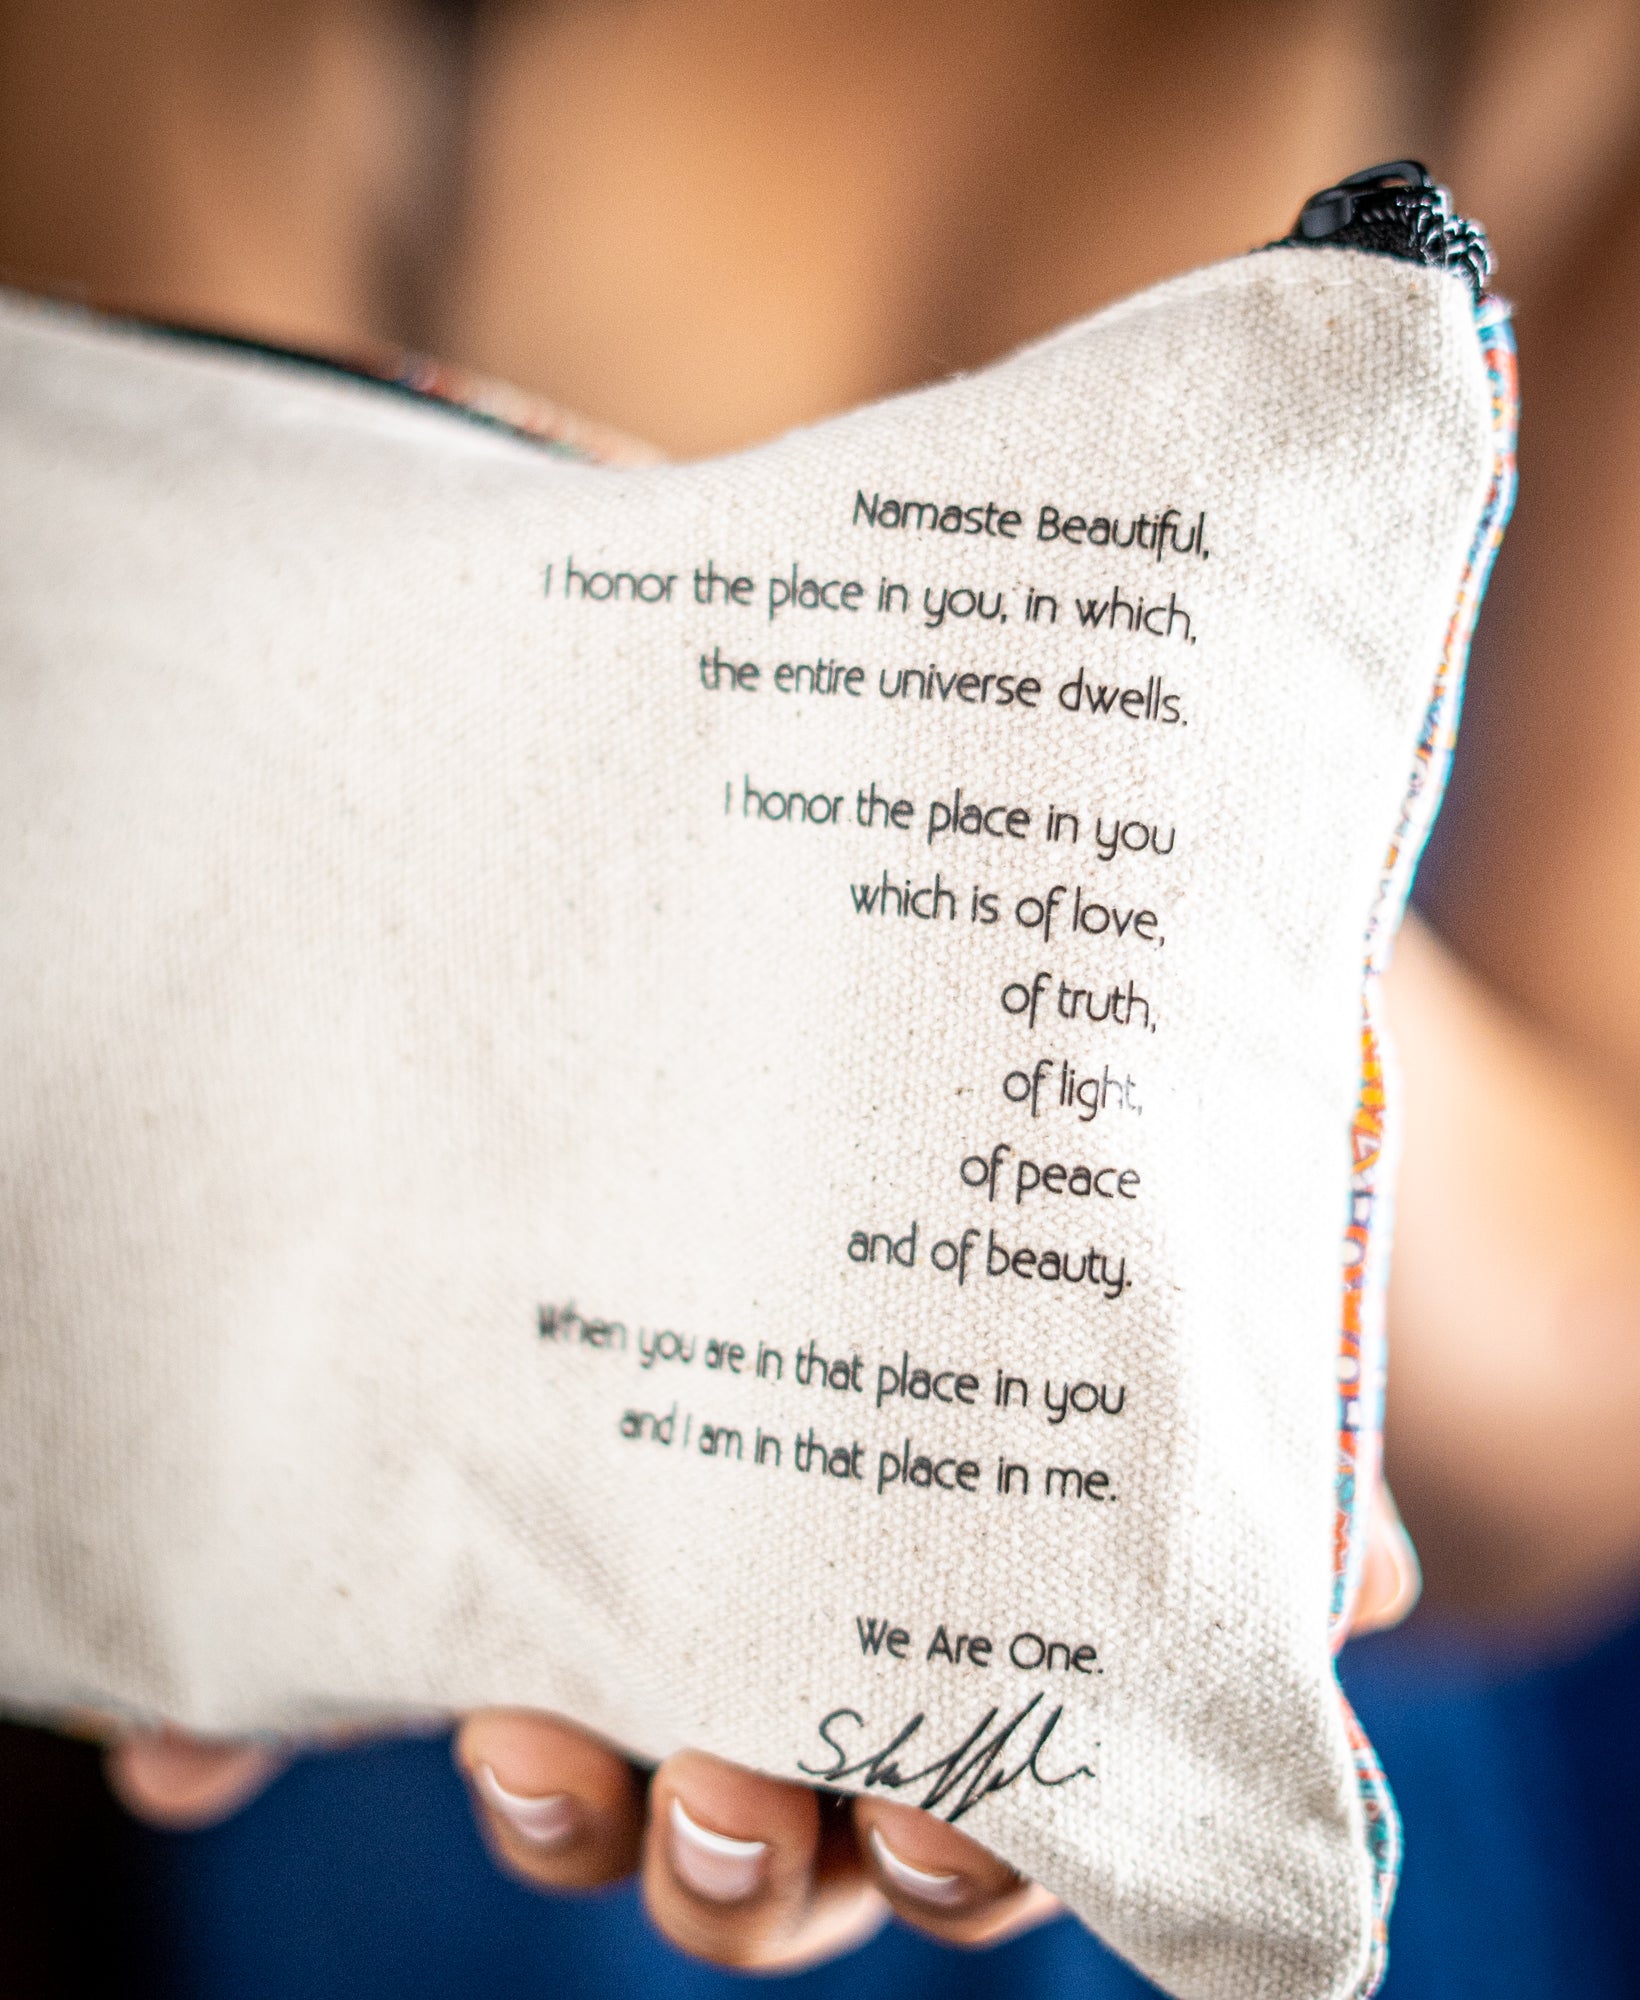 Namaste Beautiful,
I honor the place in you, in which,
the entire universe dwells.
I honor the place in you
which is of love,
of truth,
of light,
of peace
and of beauty.
When you are in that place in you
and I am in that place in me.
We Are One.